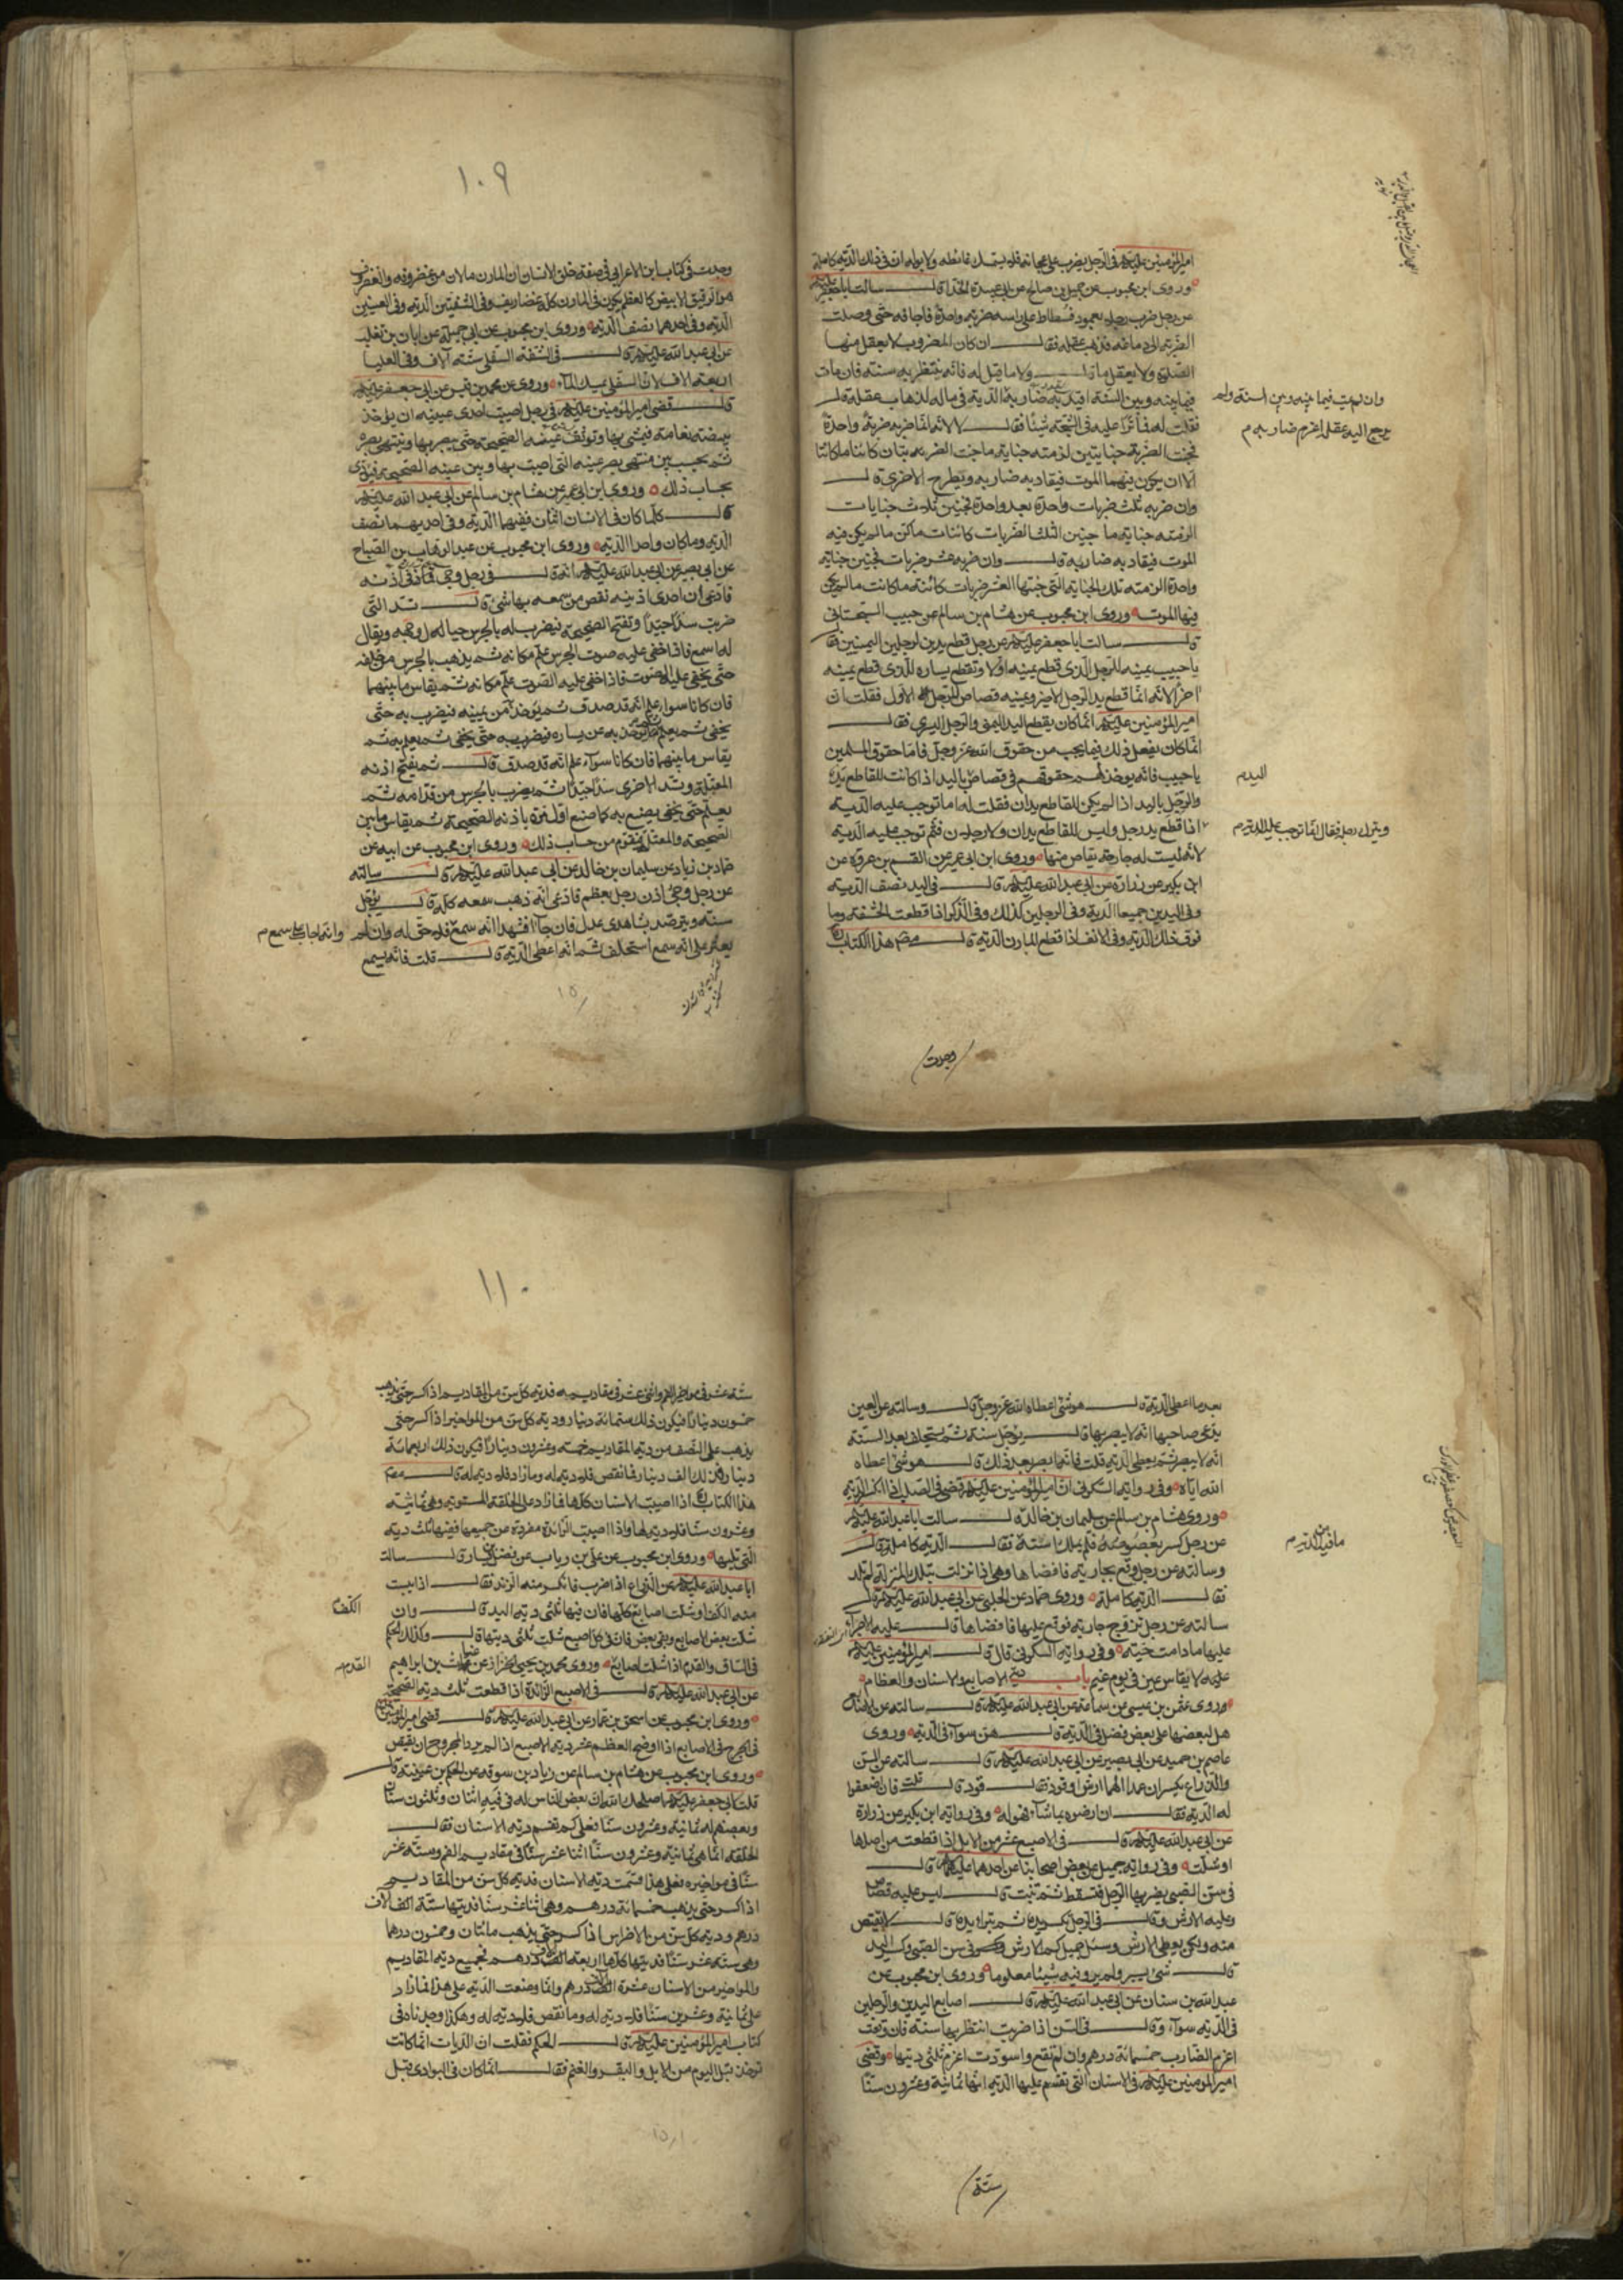 امير المؤمنين عليه السلم في الرجل يضرب على عجانه فلا يستمسك غائطه ولا بوله ان في ذلك الدية كاملة
وروى ابن محبوب عن جميل بن صالح عن ابي عبيدة الحذاء قال سالت ابا جعفر عليه السلم
عن رجل ضرب رجلا بعمود فسطاط على راسه ضربة واحدة فاجافه حتى وصلت
الضربة الى دماغه فذهب عقله فقال ان كان المضروب لا يعقل منها
الصلوة ولا يعقل ما قال ولا ما قيل له فانه ينتظر به سنة فان مات
فيما بينه وبين السنة اقيد به ضاربه الدية في ماله لذهاب عقله قال
وان لم يمت فيما بينه وبين السنة ولم
يرجع اليه عقله اغرم ضاربه م
فقلت له فما ترى عليه في الشجة شيئا فقال لا لانه انما ضربه ضربة واحدة
فجنت الضربة جنايتين لزمته جناية ما جنت الضربة بتان كائنا ما كائنا
الا ان يكون فيهما الموت فيقاد به ضاربه وتطرح الاخرى قال
وان ضربه ثلث ضربات واحدة بعد واحدة فجنين ثلاث جنايات
الزمته جناية ما جنين الثلث الضربات كائنات ما كن ما لم يكن فيه
الموت فيقاد به ضاربه قال وان ضربه عشر ضربات فجنين جناية
واحدة الزمته تلك الجناية التي جنتها العشر ضربات كائنة ما كانت ما لم يكن
فيها الموت وروى ابن محبوب عن هشام بن سالم عن حبيب السجستاني
قال سالت ابا جعفر عليه السلم عن رجل قطع يدين لرجلين اليمينين فقال
يا حبيب يمينه للرجل الذي قطع يمينه اولا وتقطع يساره للذي قطع يمينه
اخرا لانه انما قطع يد الرجل الاخير ويمينه قصاص للرجل الاول فقلت ان
امير المؤمنين عليه السلم انما كان يقطع اليد اليمنى والرجل اليسرى فقال
انما كان يفعل ذلك فيما يجب من حقوق الله عز وجل فاما حقوق المسلمين
يا حبيب فانه يوخذ لهم حقوقهم في قصاص باليد اذا كانت للقاطع يد
اليد م
والرجل باليد اذا لم يكن للقاطع يدان فقلت له اما توجب عليه الدية
ويترك رجله فقال انما توجب عليه الدية م
اذا قطع يد رجل وليس للقاطع يدان ولا رجلين فثم توجب عليه الدية
لانه ليست له جارحة يقاص منها وروى ابن ابي عمير عن القسم بن عروة عن
ابن بكير عن زرارة عن ابي عبد الله عليه السلم قال في اليد نصف الدية
وفي اليدين جميعا الدية وفي الرجلين كذلك وفي الذكر اذا قطعت الحشفة وما
فوق ذلك الدية وفي الانف اذا قطع المارن الدية قال مصنف هذا الكتاب
وجدت
١٠٩
وجدت في كتاب ابن الاعرابي في صفة خلق الانسان ان المارن ما لان من غضروفه والغضروف
هو الرقيق الابيض كالعظم يكون في المارن كله غضاريف وفي الشفتين الدية وفي العينين
الدية وفي احدهما نصف الدية وروى ابن محبوب عن ابي جميلة عن ابان بن تغلب
عن ابي عبد الله عليه السلم قال في الشفة السفلى ستة آلاف وفي العليا
اربعة الاف لان السفلى تمسك الماء وروي عن محمد بن قيس عن ابي جعفر عليه السلم
قال قضى امير المؤمنين عليه السلم في رجل اصيب احدى عينيه ان يؤخذ
بيضة نعامة فيمشي بها وتوثق عينه الصحيحة حتى يبصر بها وينتهى بصره
ثم يحسب بين منتهى بصر عينه التي اصيبت بها وبين عينه الصحيحة فيؤدى
بحساب ذلك وروى ابن ابي عمير عن هشام بن سالم عن ابي عبد الله عليه السلم
قال كلما كان في الانسان اثنان ففيهما الدية وفي احديهما نصف
الدية وما كان واحدا الدية وروى ابن محبوب عن عبد الوهاب بن الصباح
عن ابي بصير عن ابي عبد الله عليه السلم انه قال في رجل وجئ في اذنه
فادعى ان احدى اذنيه نقص من سمعه بها شئ قال تسد التي
ضربت سدا جيدا وتفتح الصحيحة فيضرب له بالجرس حيال وجهه ويقال
له اسمع فاذا خفي عليه صوت الجرس علم مكانه ثم يذهب بالجرس من خلفه
حتى يخفى عليه الصوت فاذا خفي عليه الصوت علم مكانه ثم يقاس ما بينهما
فان كانا سواء علم انه قد صدق ثم يوخذ به من يمينه فيضرب به حتى
يخفى ثم يعلم ثم يوخذ به عن يساره فيضرب به حتى يخفى ثم يعلم به ثم
يقاس ما بينهما فان كانا سواء علم انه قد صدق قال ثم تفتح اذنه
المعتلة وتسد الاخرى سدا جيدا ثم يضرب بالجرس من قدامه ثم
يعلم حتى يخفى يصنع به كما صنع اول مرة باذنه الصحيحة ثم يقاس ما بين
الصحيحة والمعتلة فيقوم من حساب ذلك وروى ابن محبوب عن ابيه عن
حماد بن زياد عن سليمان بن خالد عن ابي عبد الله عليه السلم قال سالته
عن رجل وجئ اذن رجل بعظم فادعى انه ذهب سمعه كله قال يؤجل
سنة ويترصد بشاهدي عدل فان جاءا فشهدا انه سمع فلا حق له وان لم
وانه اجاب على سمع م
يعثر على انه سمع استحلف ثم انه اعطي الدية قال قلت فانه يسمع
بعد ما اعطي الدية قال هو شئ اعطاه الله عز وجل قال وسالته عن العين
يدعي صاحبها انه لا يبصر بها قال يؤجل سنة ثم يستحلف بعد السنة
انه لا يبصر ثم يعطى الدية قلت فانه ابصر بعد ذلك قال هو شئ اعطاه
الله اياه وفي رواية السكوني ان امير المؤمنين عليه السلم قضى في الصلب اذا انكسر الدية
وروى هشام بن سالم عن سليمان بن خالد قال سالت ابا عبد الله عليه السلم
عن رجل كسر بعصوصه فلم يملك استه فقال الدية كاملة قال
ما فيه من الدية م
وسالته عن رجل وقع بجارية فافضاها وهي اذا نزلت بتلك المنزلة لم تلد
فقال الدية كاملة وروى حماد عن الحلبي عن ابي عبد الله عليه السلم قال
سالته عن رجل تزوج جارية فوقع عليها فافضاها قال عليه الاجراء
عليها ما دامت حية وفي رواية السكوني قال قال امير المؤمنين عليه السلم
عليه لا يقاس عين في يوم غيم باب دية الاصابع والاسنان والعظام
وروى عثمن بن عيسى عن سماعة عن ابي عبد الله عليه السلم قال سالته عن الاصابع
هل لبعضها على بعض فضل في الدية قال هن سواء في الدية وروى
عاصم بن حميد عن ابي بصير عن ابي عبد الله عليه السلم قال سالته عن السن
والذراع يكسران عمدا الهما ارش او قود فقال قود قال قلت فان اضعفوا
له الدية فقال ان ارضوه بما شاء فهو له وفي رواية ابن بكير عن زرارة
عن ابي عبد الله عليه السلم قال في الاصبع عشر من الابل اذا قطعت من اصلها
او شلت وفي رواية جميل عن بعض اصحابنا عن احدهما عليهما السلم قال
في سن الصبي يضربها الرجل فتسقط ثم تنبت قال ليس عليه قصاص
وعليه الارش وقال في الرجل يكسر يده ثم تبرا يده قال لا يقتص
منه ولكن يعطى الارش وسئل جميل كم الارش في سن الصبي وكسر اليد
قال شئ يسير ولم يرو فيه شيئا معلوما وروى ابن محبوب عن
عبد الله بن سنان عن ابي عبد الله عليه السلم قال اصابع اليدين والرجلين
في الدية سواء وقال في السن اذا ضربت انتظر بها سنة فان وقعت
اغرم الضارب خمسمائة درهم وان لم تقع واسودت اغرم ثلثي ديتها وقضى
امير المؤمنين عليه السلم في الاسنان التي تقسم عليها الدية انها ثمانية وعشرون سنا
ستة
١١٠
ستة عشر في مواخير الفم واثنى عشر في مقاديمه فدية كل سن من المقاديم اذا كسر حتى يذهب
خمسون دينارا فيكون ذلك ستمائة دينار ودية كل سن من المواخير اذا كسر حتى
يذهب على النصف من دية المقاديم خمسة وعشرون دينارا فيكون ذلك اربعمائة
دينار فذلك الف دينار فما نقص فلا دية له وما زاد فلا دية له قال مصنف
هذا الكتاب اذا اصيبت الاسنان كلها فما زاد على الخلقة المستوية وهي ثمانية
وعشرون سنا فلا دية لها واذا اصيبت الزائدة مفردة من جميعها ففيها ثلث دية
التي تليها وروى ابن محبوب عن علي بن رياب عن فضيل بن يسار قال سالت
ابا عبد الله عليه السلم عن الذراع اذا ضرب فانكسر منه الزند فقال اذا يبست
منه الكف او شلت اصابع كلها فان فيها ثلثي دية اليد قال وان
الكف
شلت بعض الاصابع وبقي بعض فان في كل اصبع شلت ثلثي ديتها قال وكذلك الحكم
في الساق والقدم اذا شلت اصابع وروى محمد بن يحيى الخزاز عن غياث بن ابراهيم
القدم م
عن ابي عبد الله عليه السلم قال في الاصبع الزائدة اذا قطعت ثلث دية الصحيحة
وروى ابن محبوب عن اسحق بن عمار عن ابي عبد الله عليه السلم قال قضى امير المؤمنين
في الجرح في الاصابع اذا اوضح العظم عشر دية الاصبع اذا لم يرد المجروح ان يقتص
وروى ابن محبوب عن هشام بن سالم عن زياد بن سوقة عن الحكم بن عتيبة قال
قلت لابي جعفر عليه السلم اصلحك الله ان بعض الناس له في فيه اثنان وثلثون سنا
وبعضهم له ثمانية وعشرون سنا فعلى كم تقسم دية الاسنان فقال
الخلقة انما هي ثمانية وعشرون سنا اثنا عشر سنا في مقاديم الفم وستة عشر
سنا في مواخيره فعلى هذا قسمت دية الاسنان فدية كل سن من المقاديم
اذا كسر حتى يذهب خمسمائة درهم وهي اثنا عشر سنا فديتها ستة آلاف
درهم ودية كل سن من الاضراس اذا كسر حتى يذهب مائتان وخمسون درهما
وهي ستة عشر سنا فديتها كلها اربعة الاف درهم فجميع دية المقاديم
والمواخير من الاسنان عشرة الاف درهم وانما وضعت الدية على هذا فما زاد
على ثمانية وعشرين سنا فلا دية له وما نقص فلا دية له وهكذا وجدناه في
كتاب امير المؤمنين عليه السلم قال الحكم فقلت ان الديات انما كانت
توخذ قبل اليوم من الابل والبقر والغنم فقال انما كان في البوادي قبل